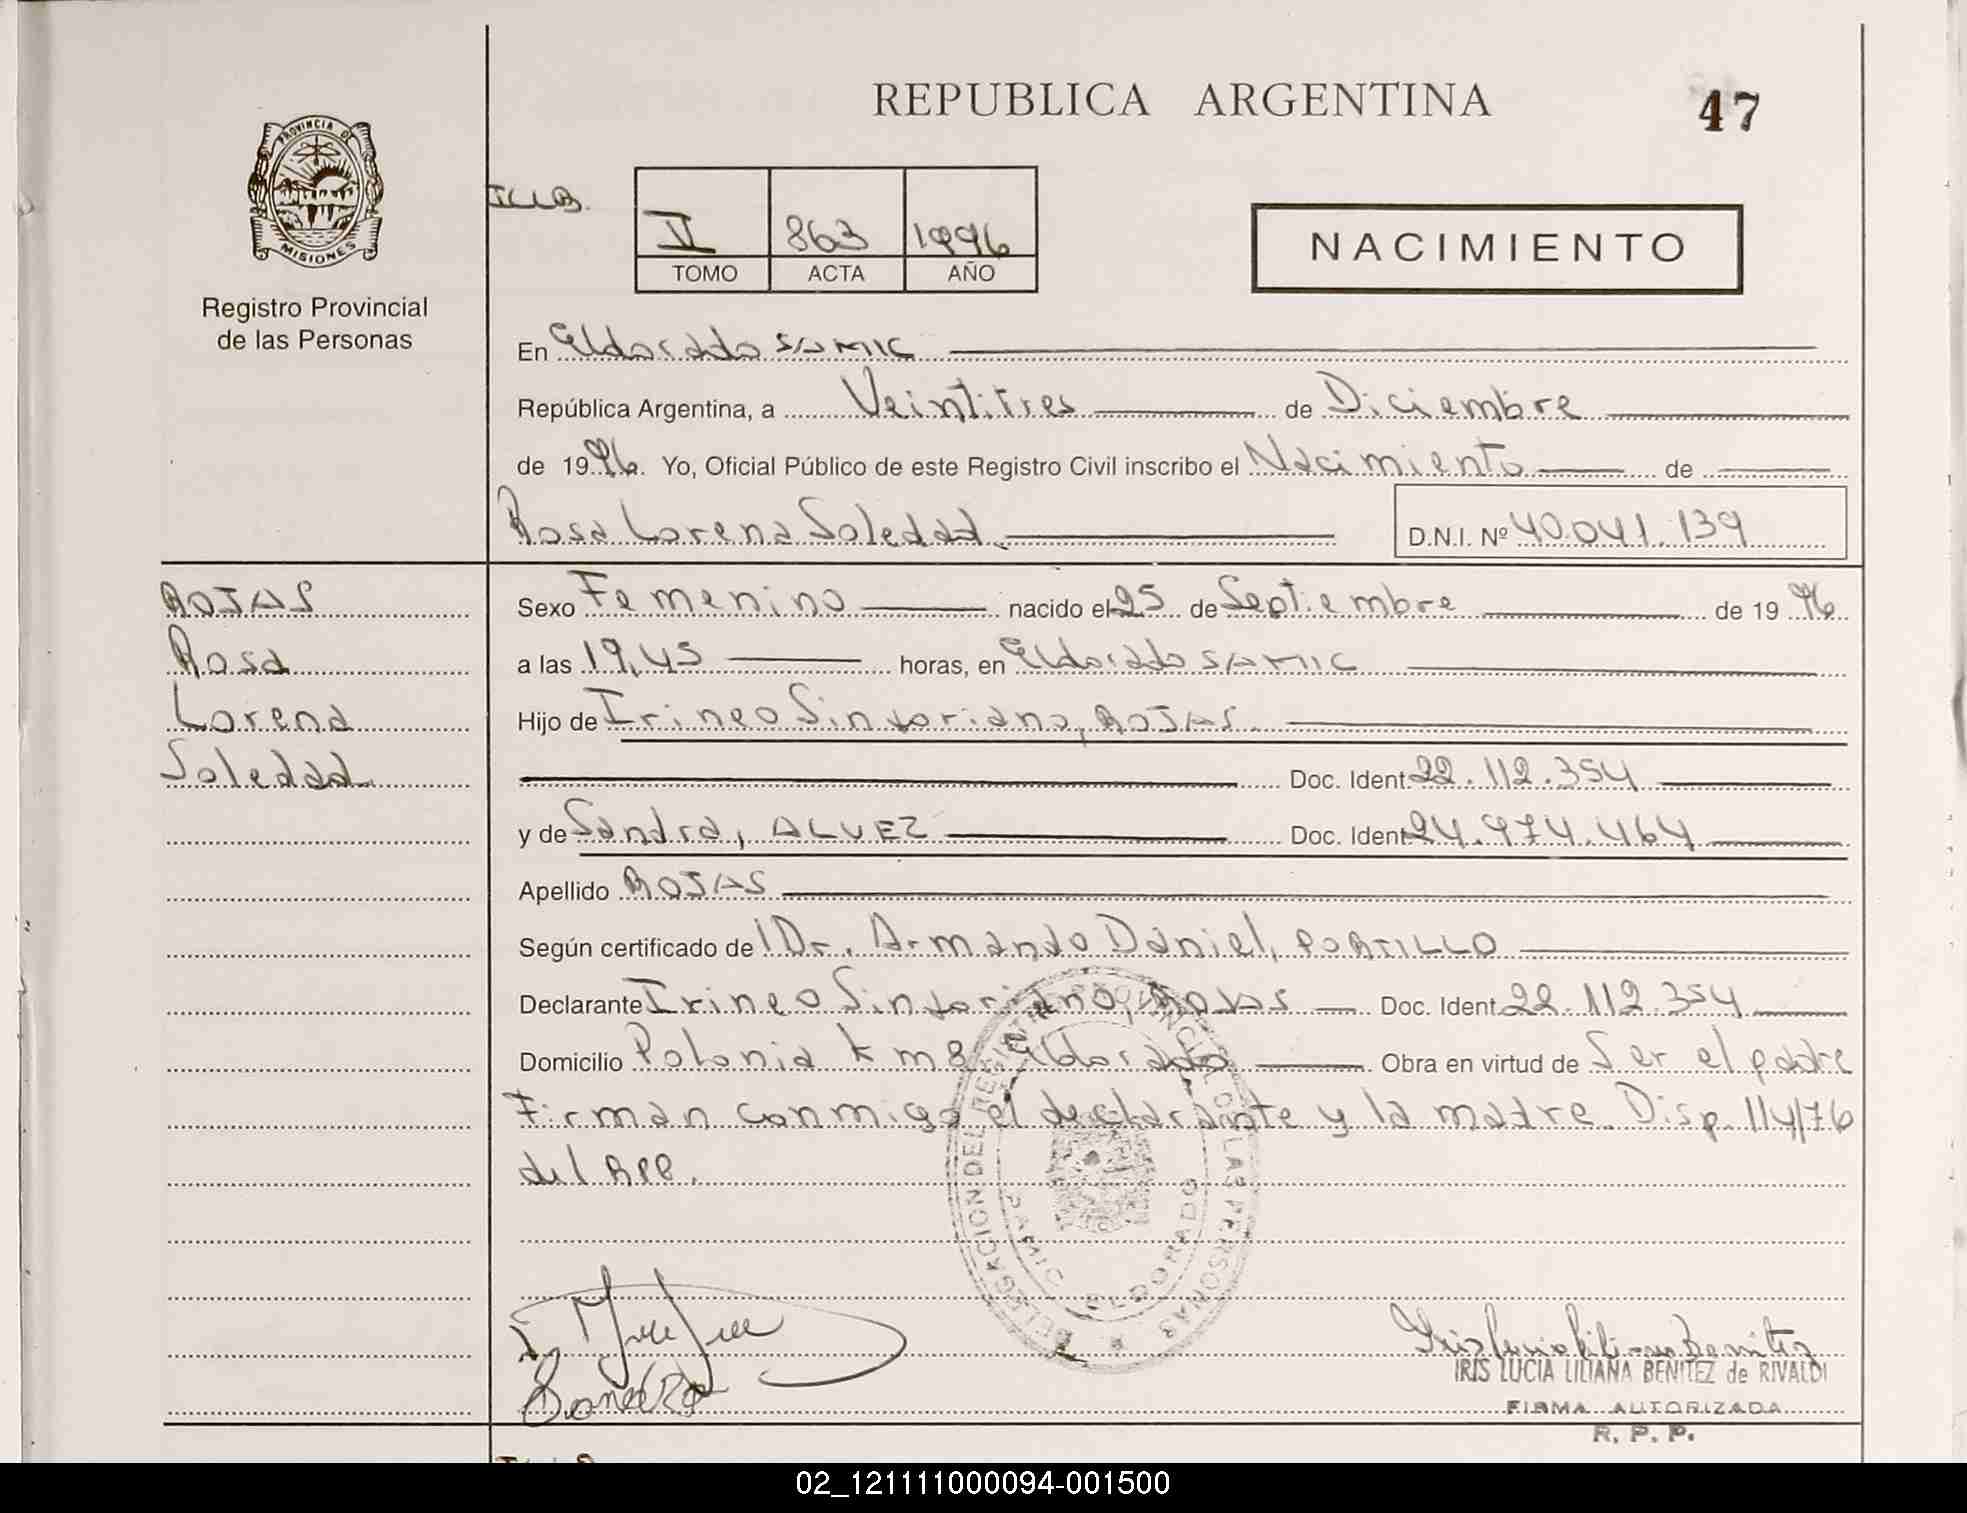 REPUBLICA ARGENTINA
47
PROVINCIA DE
MISIONES
Registro Provincial
de las Personas
II 863 1996
TOMO ACTA AÑO
NACIMIENTO
En Eldorado SAMIC
República Argentina, a Veintitres de Diciembre
de 1996. Yo, Oficial Público de este Registro Civil inscribo el Nacimiento de
Rosa Lorena Soledad.
D.N.I. Nº 40.041.139
ROJAS
Rosa
Lorena
Soledad.
Sexo Femenino nacido el 25 de Septiembre de 1996
a las 19,45 horas, en Eldorado SAMIC
Hijo de Irineo Sinforiano, ROJAS.
Doc. Ident. 22.112.354
y de Sandra, ALVEZ Doc. Ident. 24.974.464
Apellido ROJAS
Según certificado de Dr. Armando Daniel, PORTILLO
Declarante Irineo Sinforiano, ROJAS Doc. Ident. 22.112.354
Domicilio Polonia km 8 Eldorado Obra en virtud de Ser el padre
Firman conmigo el declarante y la madre. Disp. 114/76
del RPP.
DELEGACION DEL REGISTRO PROVINCIAL DE LAS PERSONAS
SAMIC ELDORADO
IRIS LUCIA LILIANA BENITEZ de RIVALDI
FIRMA AUTORIZADA
R. P. P.
02_121111000094-001500